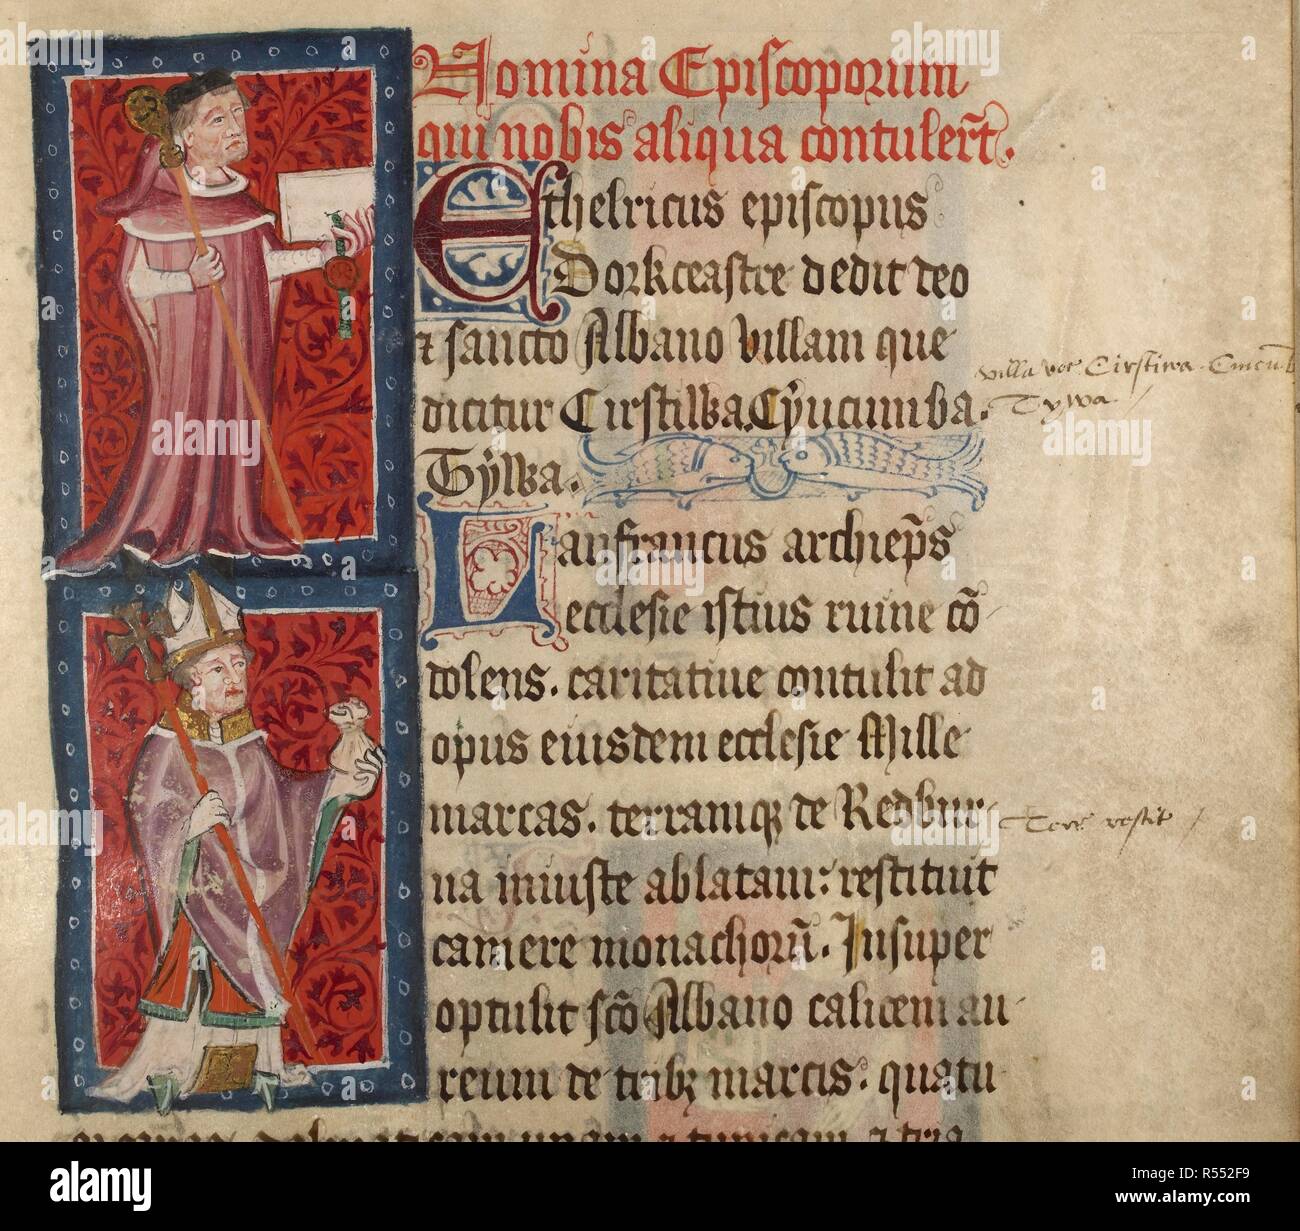 Nomina Episcoporum
qui nobis aliqua contuler̄t.
Ethelricus episcopus
Dorkceastre dedit deo
⁊ sancto Albano villam que
dicitur Cirstilwa. Cẏucumba.
Tẏlwa.
Lanfrancus archiep̄s
ecclesie istius ruine cō-
dolens. caritatiue contulit ad
opus eiusdem ecclesie Mille
marcas. terramqꝫ de Redbur-
na iniuste ablatam: restituit
camere monachorū. Insuper
optulit sc̄o Albano calicem au-
reum de tribꝫ marcis. quatu
villa voc Cirstiwa
Tywa
Terr restit
alamy
Image ID: R552F9
www.alamy.com